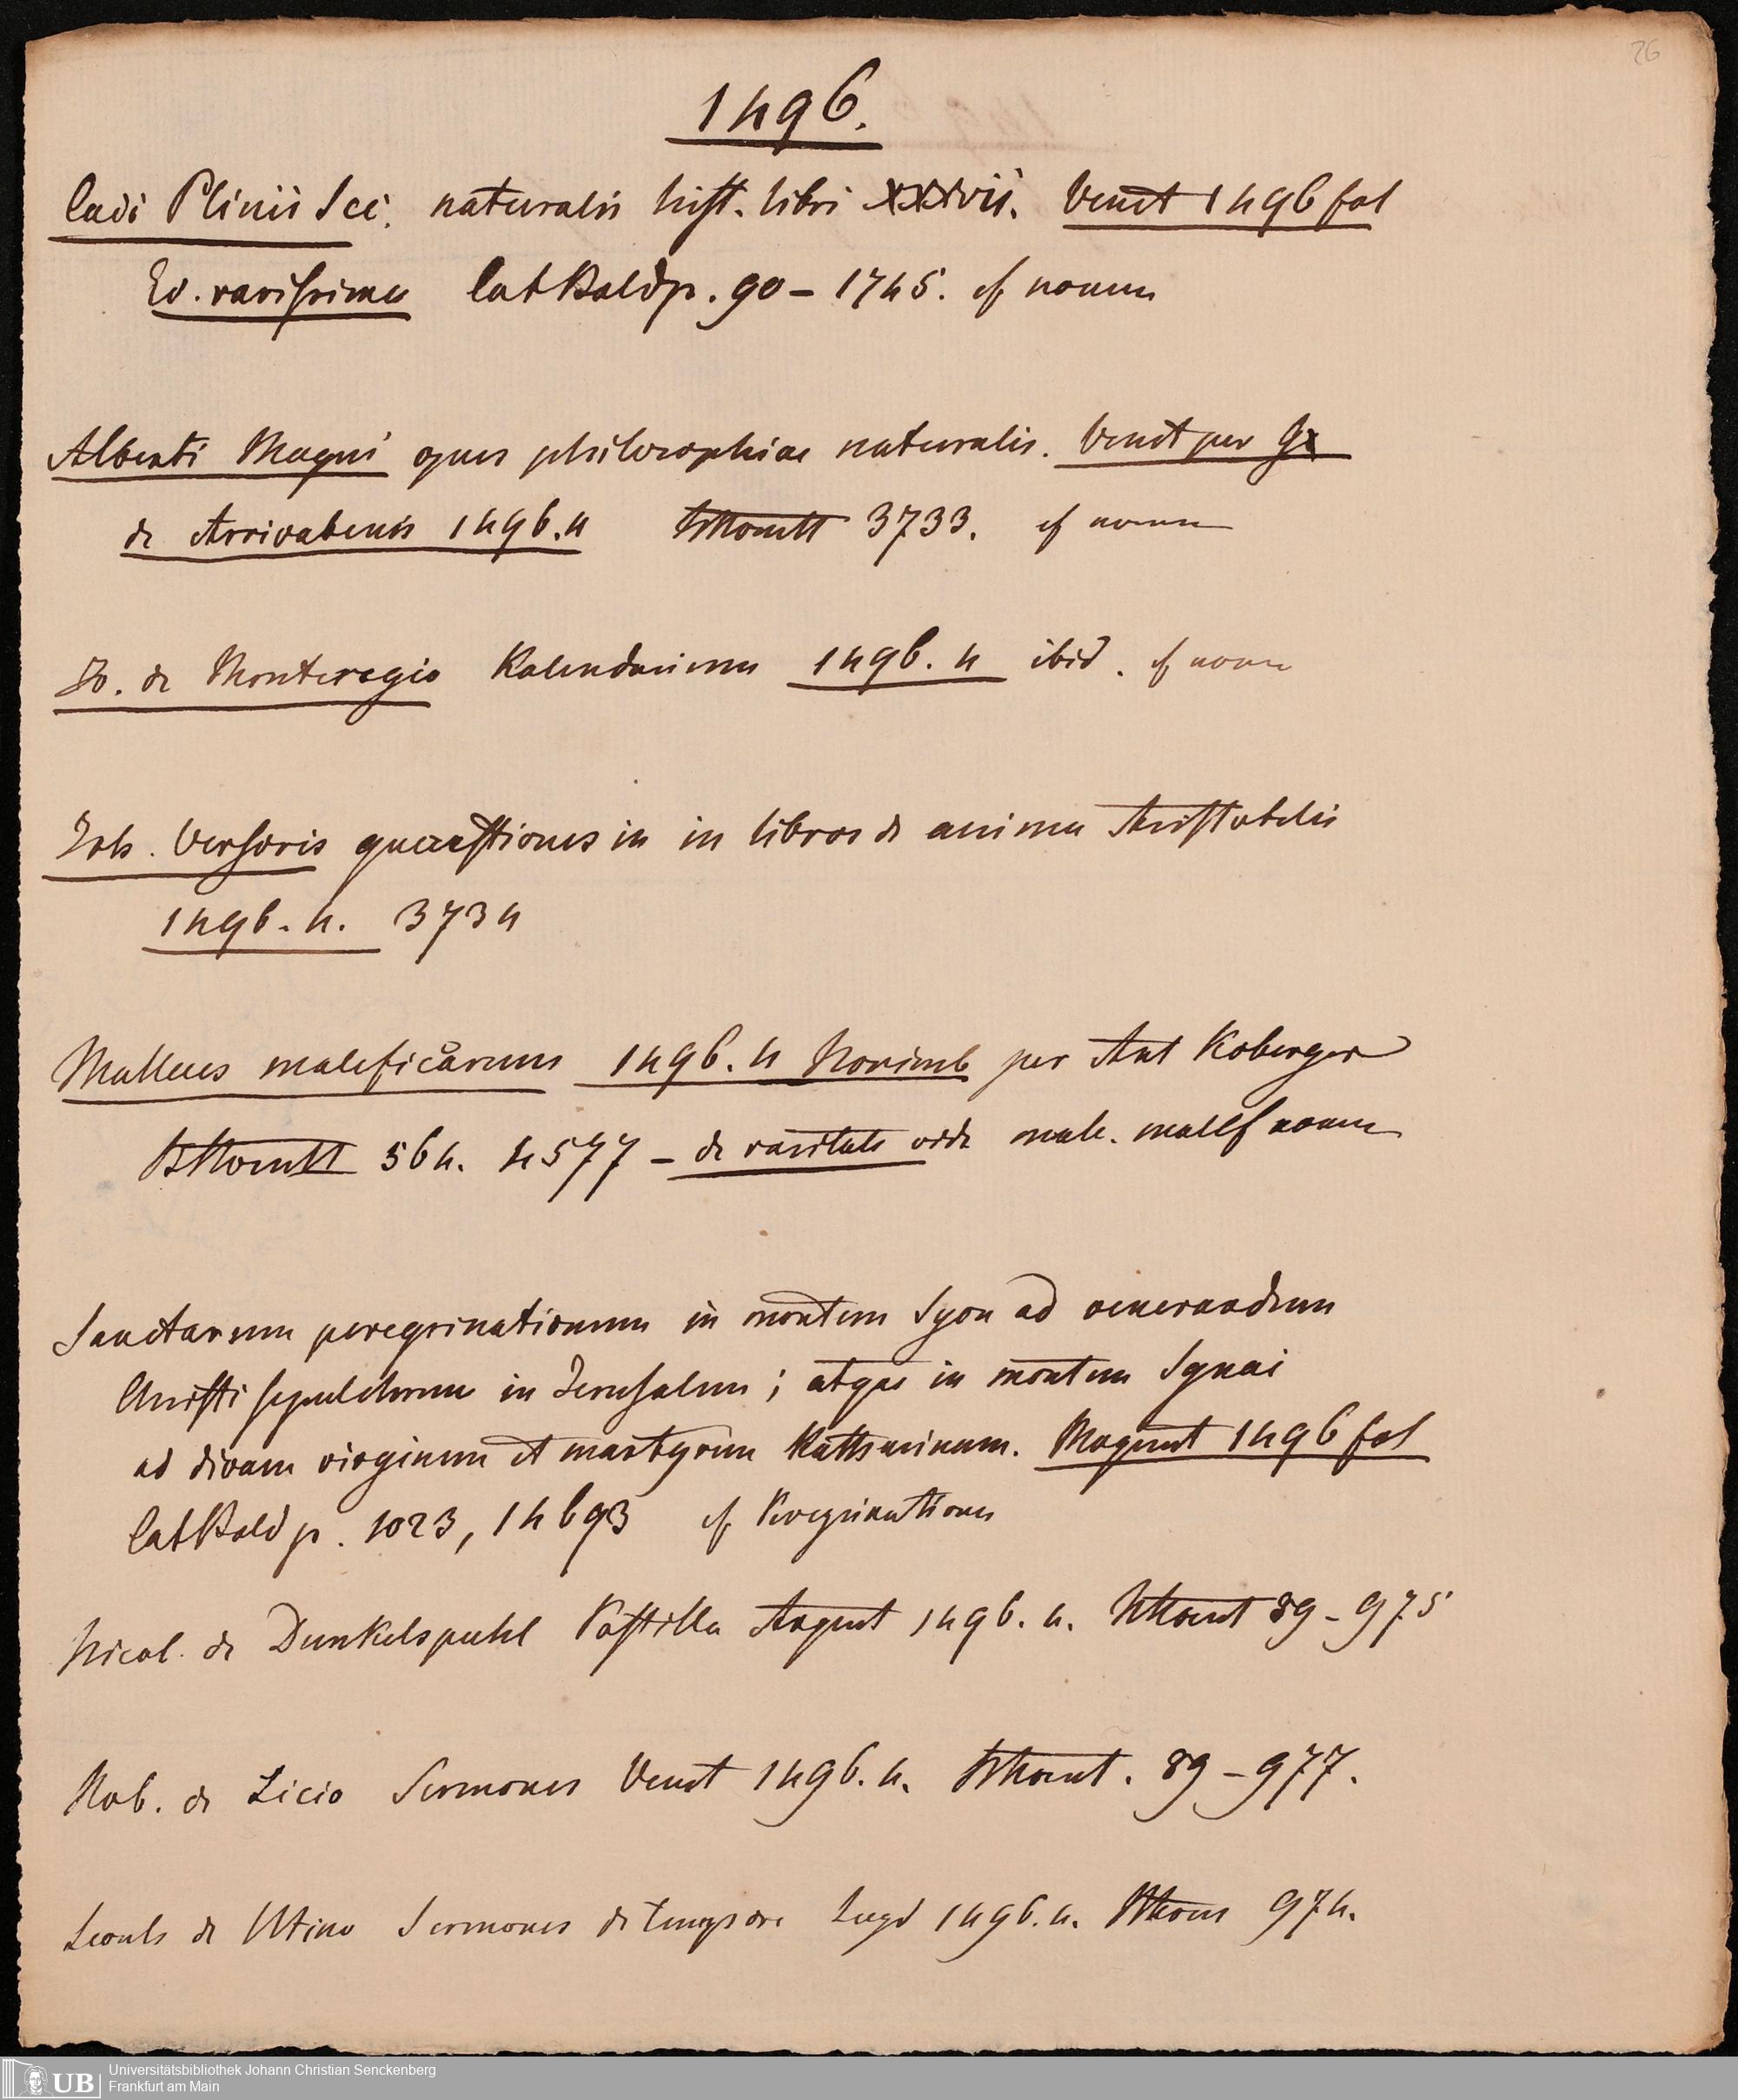 26
1496.
Cadi Plinii Sec. naturalis hist. libri xxxvii. Venet 1496 fol
Ed. rarissima CatBald p. 90 – 1745. cf nomen
Alberti Magni opus philosophiae naturalis. Venet per
de Arrivabenis 1496. 4 3733. cf nomen
Jo. de Monteregio Kalendarium 1496. 4 ibid. cf nomen
Joh. Versoris quaestiones in in libros de anima Aristotelis
1496. 4. 3734
Malleus maleficarum 1496. 4 Norimb per Ant Koberger
564. 4577 – de raritate vide male. mallf nomen
Sanctarum peregrinationum in montem Syon ad venerandum
Christi sepulchrum in Jerusalem; atque in montem Synai
ad divam virginem et martyrem Katharinam. Magunt 1496 fol
CatBald p. 1023, 14693 cf Peregrinationes
Nicol. de Dunkelspuhl Postilla Argent 1496. 4. 89–975
Rob. de Licio Sermones Venet 1496. 4. 89–977.
de Utino Sermones de tempore Lugd 1496. 4. 974.
UB Universitätsbibliothek Johann Christian Senckenberg
Frankfurt am Main